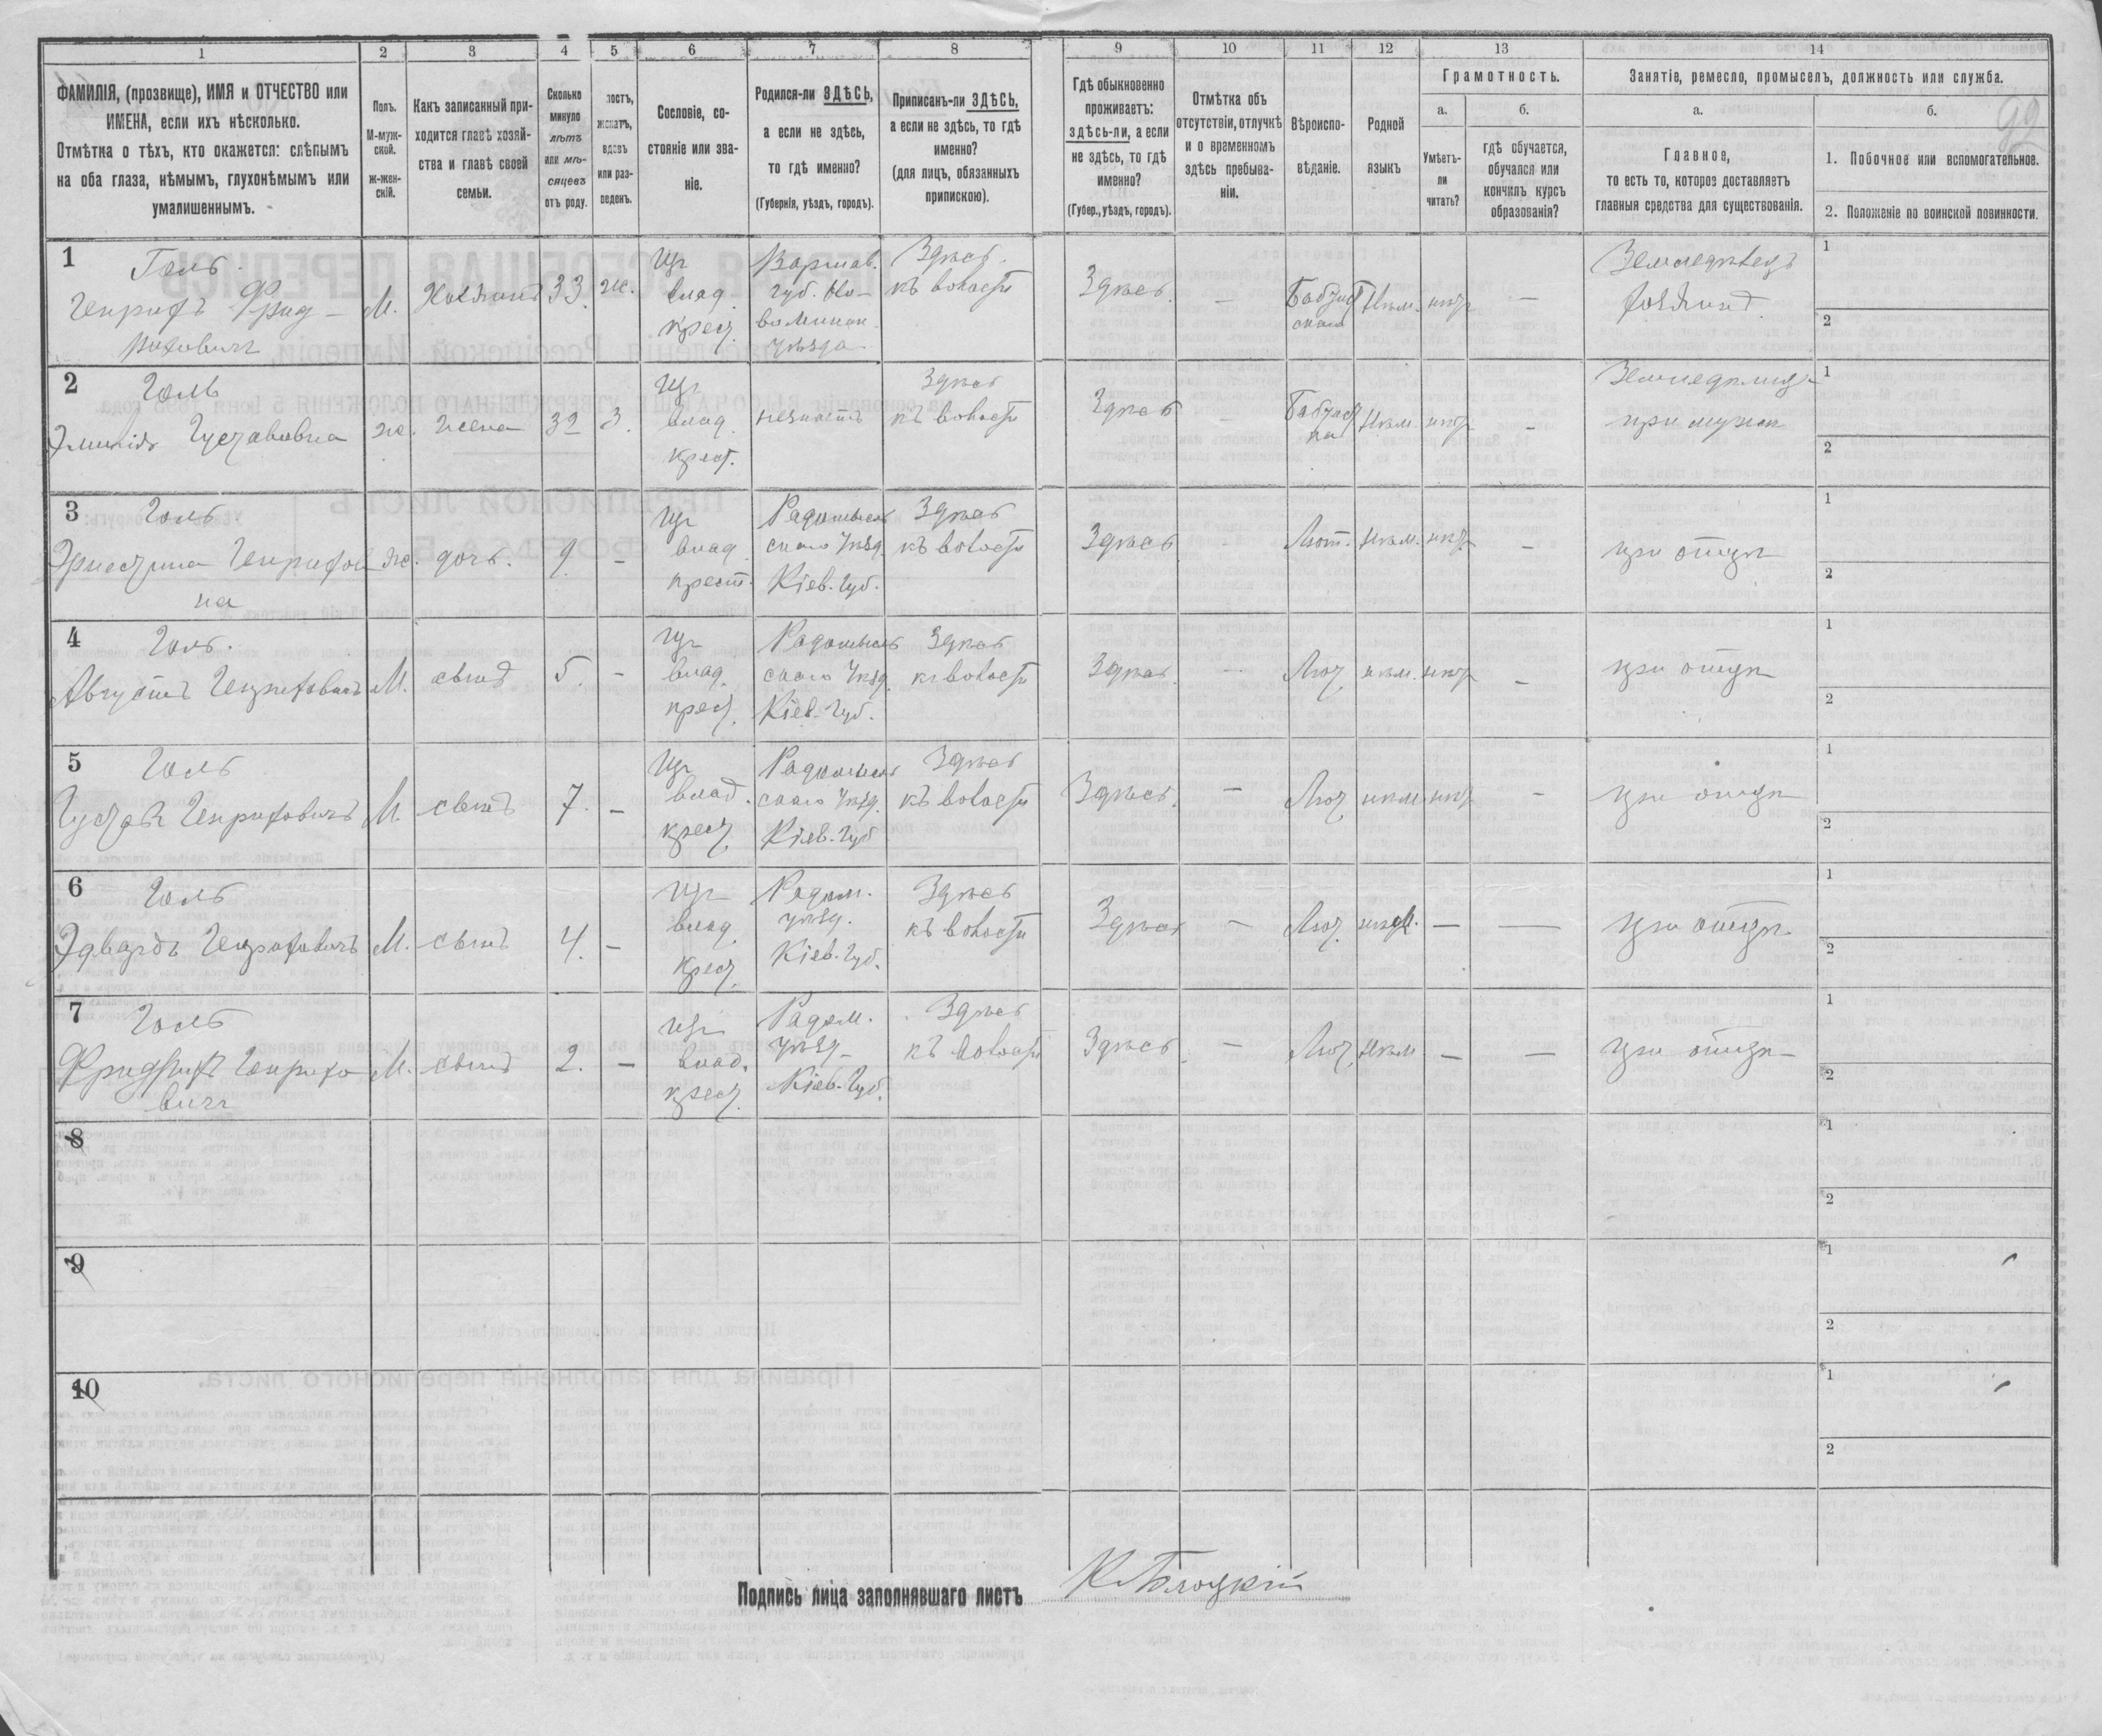 1 2 3 4 5 6 7 8 9 10 11 12 13 14
ФАМИЛІЯ, (прозвище), ИМЯ и ОТЧЕСТВО или
ИМЕНА, если ихъ нѣсколько.
Отмѣтка о тѣхъ, кто окажется: слѣпымъ
на оба глаза, нѣмымъ, глухонѣмымъ или
умалишеннымъ.
Полъ.
М-муж-
ской.
Ж-жен-
скій.
Какъ записанный при-
ходится главѣ хозяй-
ства и главѣ своей
семьи.
Сколько
минуло
лѣтъ
или мѣ-
сяцевъ
отъ роду.
лостъ,
женатъ,
вдовъ
или раз-
веденъ.
Сословіе, со-
стояніе или зва-
ніе.
Родился-ли ЗДѢСЬ,
а если не здѣсь,
то гдѣ именно?
(Губернія, уѣздъ, городъ).
Приписанъ-ли ЗДѢСЬ,
а если не здѣсь, то гдѣ
именно?
(для лицъ, обязанныхъ
припискою).
Гдѣ обыкновенно
проживаетъ:
здѣсь-ли, а если
не здѣсь, то гдѣ
именно?
(Губер., уѣздъ, городъ).
Отмѣтка объ
отсутствіи, отлучкѣ
и о временномъ
здѣсь пребыва-
ніи.
Вѣроиспо-
вѣданіе.
Родной
языкъ
Грамотность.
а.
Умѣетъ-
ли
читать?
б.
гдѣ обучается,
обучался или
кончилъ курсъ
образованія?
Занятіе, ремесло, промыселъ, должность или служба.
а.
Главное,
то есть то, которое доставляетъ
главныя средства для существованія.
б.
1. Побочное или вспомогательное.
2. Положеніе по воинской повинности.
92
1
Голь.
Генрихъ Фрид-
риховичъ
М.
33
же.
влад.
крест.
Варшав.
губ. Но-
воминск.
уѣзда
Здѣсь.
къ волости
Здѣсь
—
Баптист
скаго
Нѣм.
нѣт
—
Земледѣлецъ
1
2
2
Голь
Эмилія Густавовна
же.
жена
32
З.
влад.
крест.
неизвѣстъ
Здѣсь
къ волости
Здѣсь
Баптист
ка
Нѣм.
нѣт
–
при мужѣ
1
2
3
Голь
Эрнестина Генрихов
на
же.
дочь.
9.
–
влад
крест.
Радомысль
скаго уѣзд.
Кіев. Губ.
Здѣсь
къ волости
Здѣсь
Лют.
Нѣм.
нѣт
–
при отцѣ
1
2
4
Голь.
Августъ Генриховичъ
М.
сынъ
5.
–
влад.
крест.
Радомысль
скаго Уѣзд.
Кіев. Губ.
Здѣсь
къ волости
Здѣсь
Лют.
нѣм.
нѣт
–
при отцѣ
1
2
5
Голь
Густавъ Генриховичъ
М.
сынъ
7.
–
влад.
крест.
Радомысль
скаго Уѣзд.
Кіев. Губ
Здѣсь
къ волости
Здѣсь.
—
Лют.
нѣм
нѣт
-
при отцѣ
1
2
6
Голь
Эдвардъ Генриховичъ
М.
сынъ
4.
–
влад.
крест.
Радом.
уѣзд.
Кіев. Губ.
Здѣсь
къ волости
Здѣсь
—
Лют.
нѣм.
—
—
при отцѣ.
1
2
7
Голь
Фридрихъ Генрихо
вичъ
М.
сынъ
2.
–
влад.
крест.
Радом.
Уѣзд
Кіев. Губ.
Здѣсь
къ волости
Здѣсь
—
Лют.
Нѣм
—
—
при отцѣ
1
2
8
1
2
9
1
2
10
1
2
Подпись лица заполнявшаго листъ